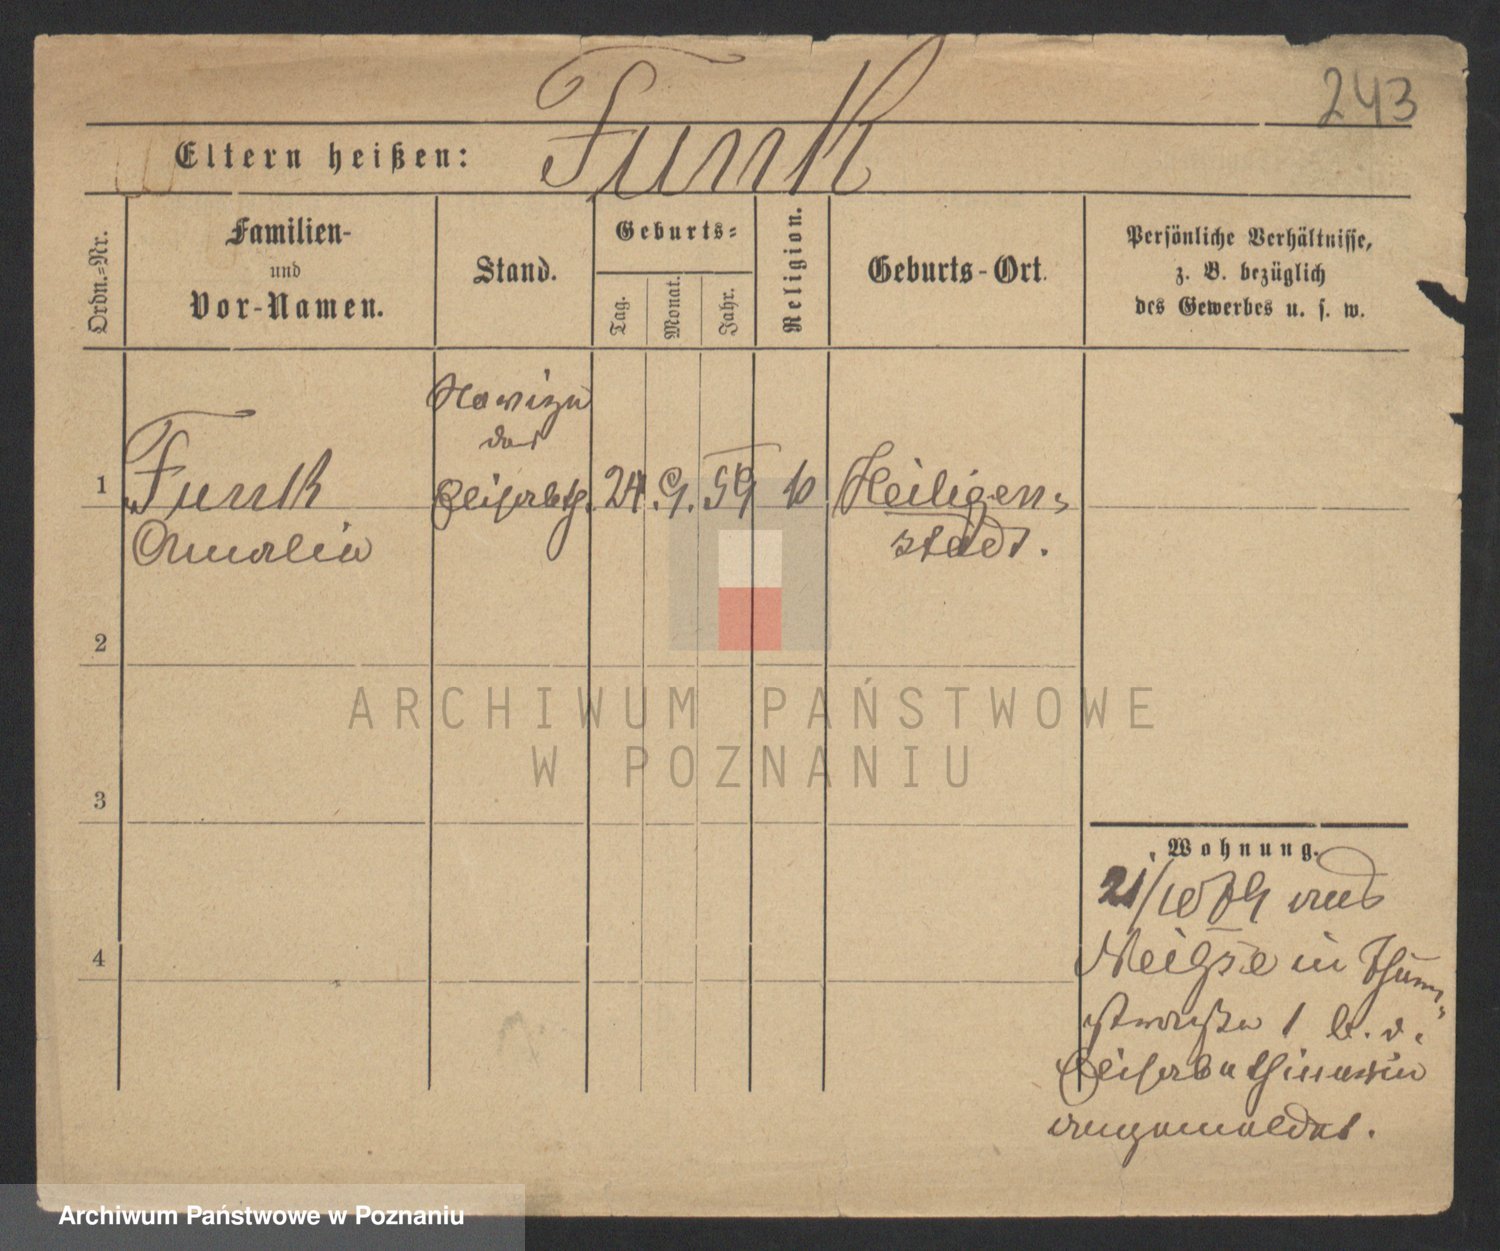 Funk
243
Eltern heißen:
Ordn.=Nr.
Familien-
und
Vor-Namen.
Stand.
Geburts=
Tag.
Monat.
Jahr.
Religion.
Geburts-Ort.
Persönliche Verhältnisse,
z. B. bezüglich
des Gewerbes u. s. w.
1
Funk
Amalia
Novize
der
Elisabeth.
24.
9.
59
k
Heiligen=
stadt.
2
3
4
Wohnung.
21/10 84 aus
Neisse in Thurm=
straße 1 b. d.
Elisabethinerin
angemeldet.
ARCHIWUM PAŃSTWOWE
W POZNANIU
Archiwum Państwowe w Poznaniu